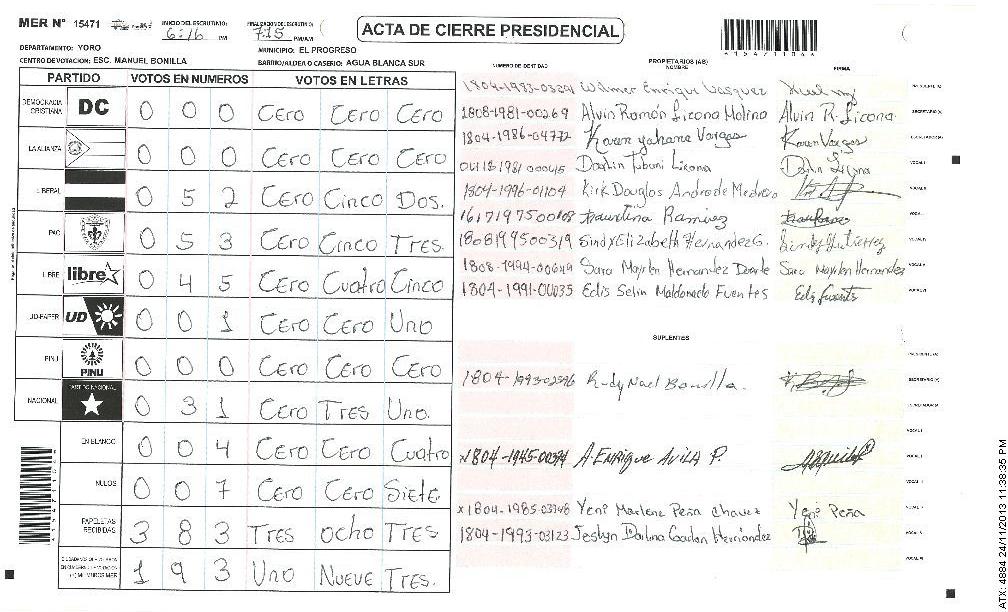 MER Nº 15471
INICIO DEL ESCRUTINIO: 6:16 PM
FINALIZACION DEL ESCRUTINIO: 7:15 PM/AM
ACTA DE CIERRE PRESIDENCIAL
DEPARTAMENTO: YORO
MUNICIPIO: EL PROGRESO
CENTRO DE VOTACION: ESC. MANUEL BONILLA
BARRIO/ALDEA O CASERIO: AGUA BLANCA SUR
PARTIDO VOTOS EN NUMEROS VOTOS EN LETRAS
DEMOCRACIA CRISTIANA DC 0 0 0 Cero Cero Cero
LA ALIANZA 0 0 0 Cero Cero Cero
LIBERAL 0 5 2 Cero Cinco Dos.
PAC 0 5 3 Cero Cinco Tres
LIBRE libre 0 4 5 Cero Cuatro Cinco
UD-FAPER UD 0 0 1 Cero Cero Uno
PINU PINU 0 0 0 Cero Cero Cero
NACIONAL PARTIDO NACIONAL 0 3 1 Cero Tres Uno.
EN BLANCO 0 0 4 Cero Cero Cuatro
NULOS 0 0 7 Cero Cero Siete
PAPELETAS RECIBIDAS 3 8 3 Tres ocho Tres
1 9 3 Uno Nueve Tres.
NUMERO DE IDENTIDAD PROPIETARIOS (AS) NOMBRE FIRMA
Wilmer Enrique Vasquez
1808-1981-00269 Alvin Ramón Licona Molina Alvin R. Licona
1804-1986-04772 Karen yahana Vargas Karen Vargas
Licona
1804-1996-01104 Kirk Douglas Andrade Medrano
Faustina Ramirez
1808199500319 Sindy Elizabeth Hernandez G.
1808-1994-00649 Sara Maylen Hernandez Duarte Sara Maylen Hernandez
1804-1991-00035 Edis Selin Maldonado Fuentes Edis Fuentes
SUPLENTES
Rudy Noel Bonilla.
A. Enrique Avila P.
x1804-1985-03748 Yeni Marlene Peña Chavez Yeni Peña
1804-1993-03123 Hernández
ATX: 4884 24/11/2013 11:38:35 PM